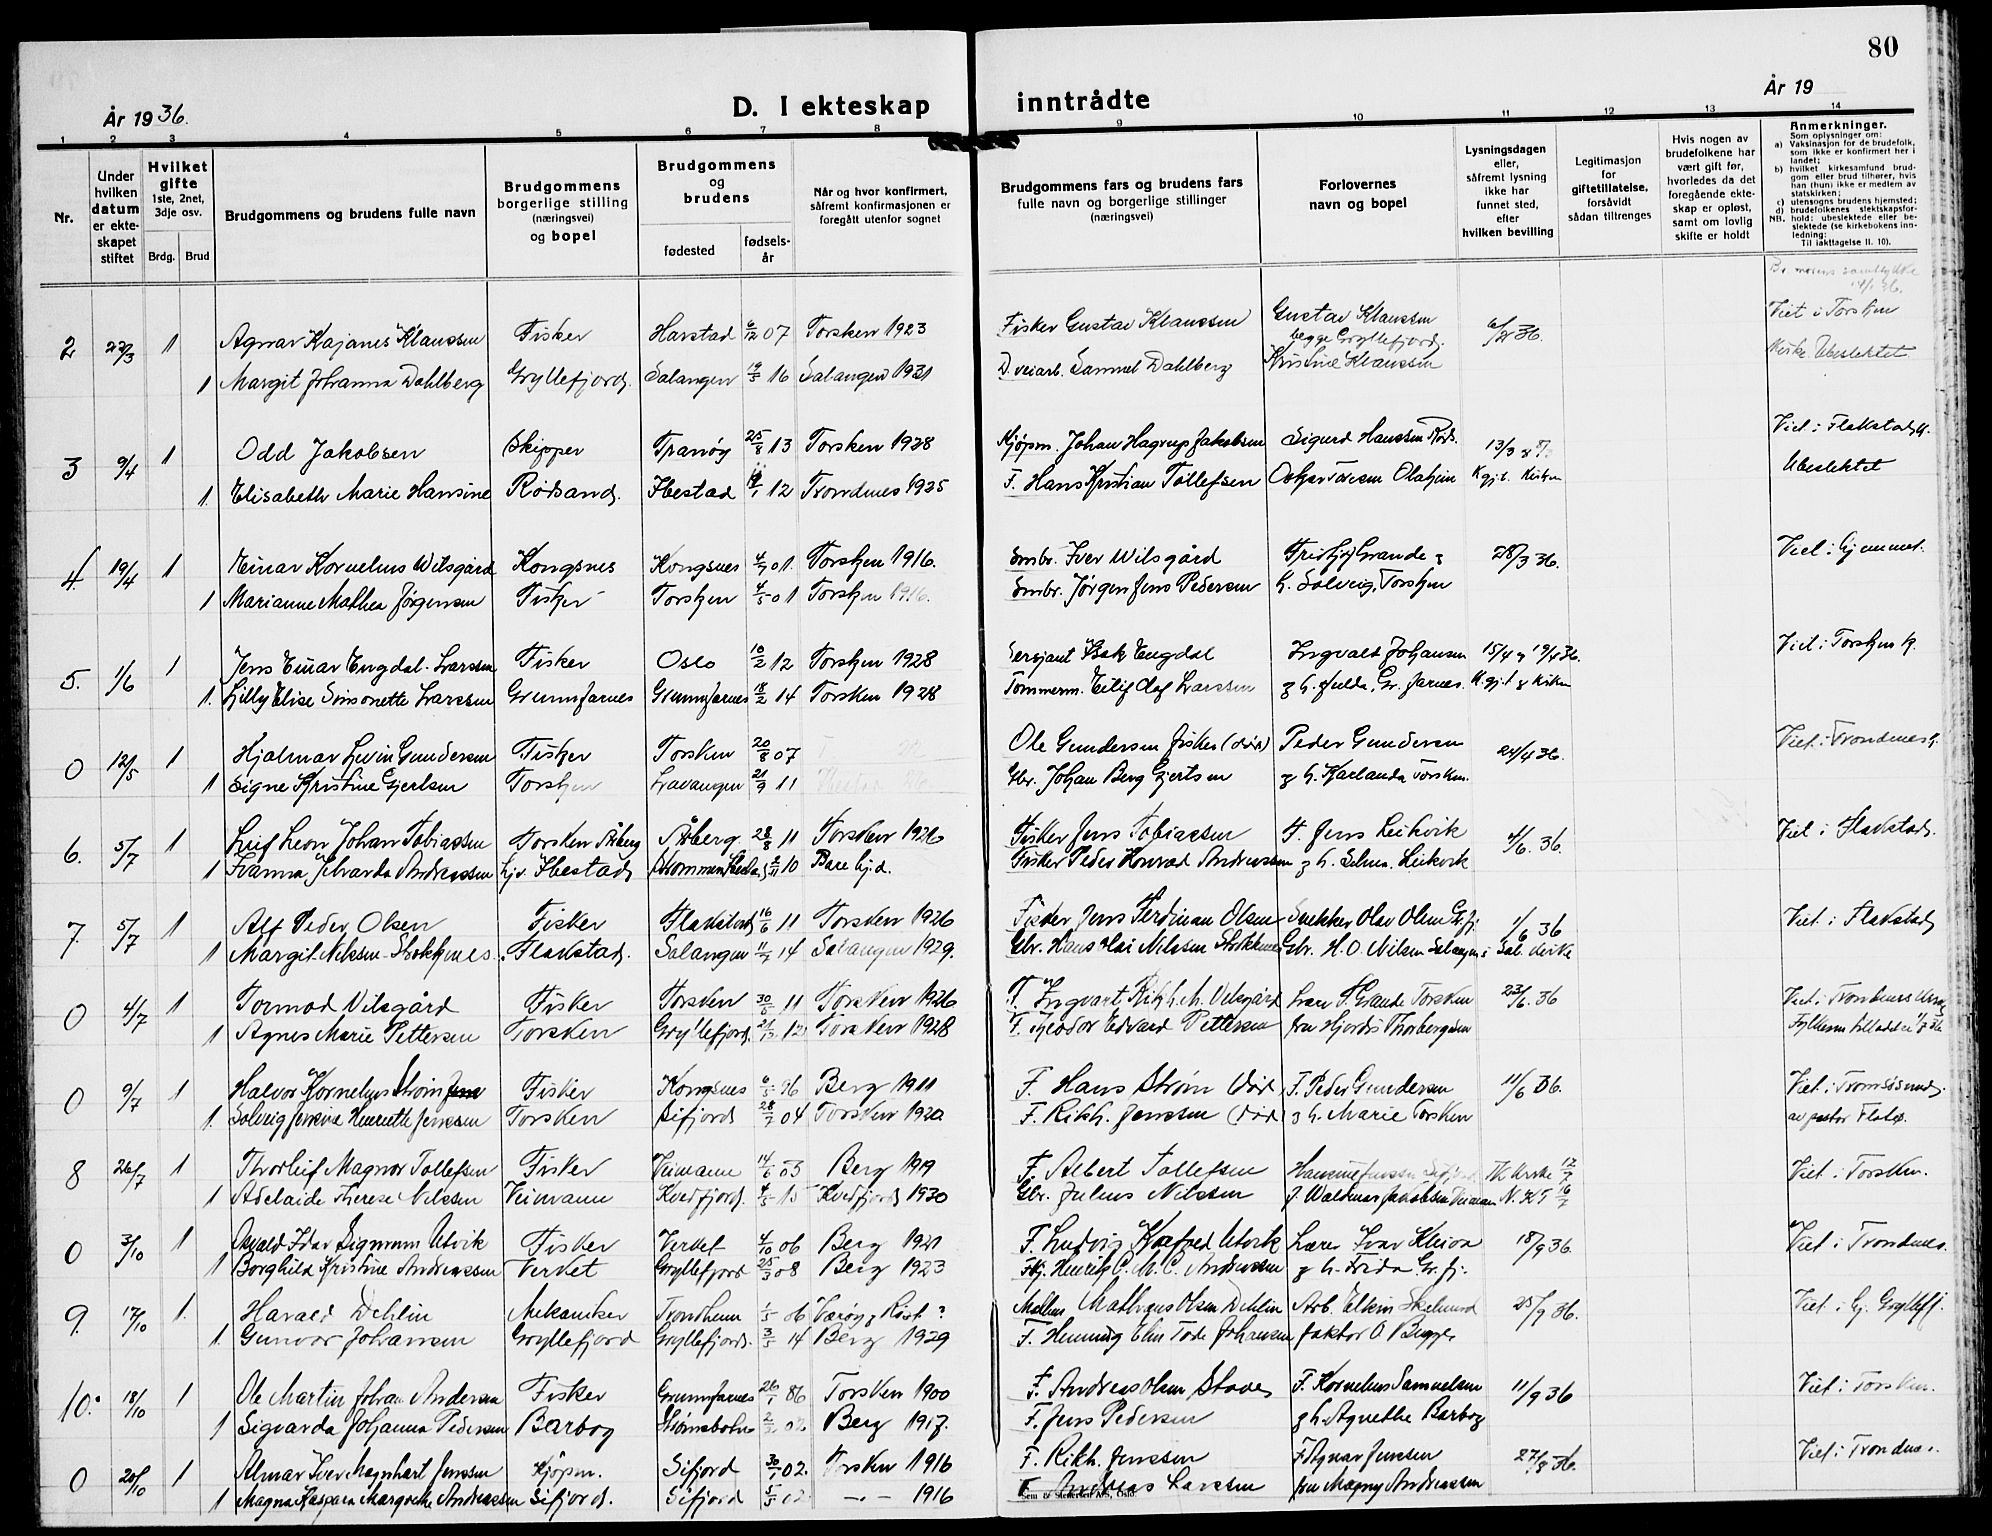 80
År 1936.
D. I ekteskap inntrådte
År 19
1 2 3 4 5 6 7 8 9 10 11 12 13 14
Nr.
Under hvilken datum er ekteskapet stiftet
Hvilket gifte
1ste, 2net, 3dje osv.
Brdg. Brud
Brudgommens og brudens fulle navn
Brudgommens borgerlige stilling (næringsvei) og bopel
Brudgommens og brudens
fødested
fødselsår
Når og hvor konfirmert, såfremt konfirmasjonen er foregått utenfor sognet
Brudgommens fars og brudens fars fulle navn og borgerlige stillinger (næringsvei)
Forlovernes navn og bopel
Lysningsdagen eller, såfremt lysning ikke har funnet sted, efter hvilken bevilling
Legitimasjon for giftetillatelse, forsåvidt sådan tiltrenges
Hvis nogen av brudefolkene har vært gift før, hvorledes da det foregående ekteskap er opløst, samt om lovlig skifte er holdt
Anmerkninger.
Som oplysninger om:
a) Vaksinasjon for de brudefolk, som ikke er konfirmert her i landet;
b) hvilket kirkesamfund brudgom eller brud tilhører, hvis han (hun) ikke er medlem av statskirken;
c) utensogns brudens hjemsted;
d) brudefolkenes slektskapsforhold: ubeslektede eller beslektede (se kirkebokens innledning:
NB. Til iakttagelse II. 10).
2 23/3 1 Agnar Kajanes Klaussen Fisker Harstad 6/12 07 Torsken 1923 Fisker Gustav Klaussen Gustav Klaussen 36. Viet i Torsken
begge Gryllefjord.
1 Margit Johanna Dahlberg Gryllefjord. Salangen 19/5 16 Salangen 1931 D. veiarb. Samuel Dahlberg Kristine Klaussen Kirke Ubeslektet
3 9/4 1 Odd Jakobsen Skipper Tranøy 25/8 13 Torsken 1928 Kjøpm. Johan Hagrup Jakobsen Sigurd Hanssen Røds. 13/3 Viet i Flakstad k.
1. Elisabeth Marie Hansine Rødsand. Ibestad 12 Trondenes 1925 F. Hans Kristian Tollefsen Olahjem Ubeslektet
4. 19/4 1 Einar Kornelius Wilsgård Kongsnes Kongsnes 4/7 01. Torsken 1916. Smbr. Iver Wilsgård Grande 28/3 36. Viet i hjemmet.
1 Marianne Mathea Jørgensen Fisker Torsken 4/5 01 Torsken 1916. Smbr. Jørgen Jens Pedersen h. Solveig, Torsken
5. 1/6 1 Jens Einar Engdal-Larssen Fisker Oslo 10/2 12 Torsken 1928 Sersjant Isak Engdal Ingvald Johansen 15/4 19/4 36. Viet i Torsken k.
1. Lilly Elise Simonette Larssen Grunnfarnes Grunnfarnes 18/2 14 Torsken 1928 Tømmerm. Eilif Olaf Larssen h. Hulda, Gr. farnes.
0 12/5 1 Hjalmar Levin Gundersen Fisker Torsken 20/8 07 Ole Gundersen fisker (død) Peder Gundersen 24/4 36. Viet i Trondenes k.
1 Signe Kristine Gjertsen Torsken Lavangen 21/9 11 Gbr. Johan Berg Gjertsen h. Karlanda Torsken.
6. 5/7 1 Leif Leon Johan Tobiassen Torsken Åberg Åberg. 28/8 11 Torsken 1926 Fisker Jens Tobiassen F. Jens Leikvik 4/6. 36. Viet i Flakstad.
1 Ivanna Edvarda Andreassen Ibestad 10 Bare hj.d. Fisker Peder Konrad Andreassen h. Selma Leikvik
7. 5/7 1 Alf Peder Olsen Fisker Flakstad 16/6 11 Torsken 1926 Fisker Jens Ferdinan Olsen Snekker Olav Olsen Gr.fj. 1/6 36 Viet i Flakstad
1 Margit Nilssen-Stokknes. Flakstad. Salangen 14 Salangen 1929. Gbr. Hans Nilssen Stokknes Gbr. H. O. Nilsen Salangen Sal. kirke
0 4/7 1 Tormod Vilsgård Fisker Torsken 30/5 11 Torsken 1926 F. Ingvart Rikh. M. Vilsgård Grande Torsken 23/6. 36 Viet i Trondenes
1 Agnes Marie Pettersen Torsken Gryllefjord. 12 Torsken 1928 F. Teodor Edvard Pettersen fru Hjørdis Thorbergsen
0 9/7 1 Halvor Kornelius Strøm Fisker Kongsnes 96 Berg 1911 F. Hans Strøm (død) F. Peder Gundersen 11/6 36. Viet i Tromsøsund.
1. Solveig Henriette Jenssen Torsken Sifjord 28/7 04 Torsken 1920 F. Rikh. Jenssen (død) h. Marie Torsken av pastor
8 26/7 1 Thorleif Magnor Tollefsen Fisker Veimann 14/6 03 Berg 1919 F. Albert Tollefsen Viet i Torsken.
1 Adelaide Therese Nilssen Veimann Kvedfjord. 15 Kvedfjord 1930 Gbr. Julius Nilssen F. Waldemar Jakobsen Veiman
0 3/10 1 Osvald Idar Sigmunn Utvik Fisker Vervet 4/10 06 Berg 1921 F. Ludvig Utvik Lærer Ivar 18/9 36. Viet i Trondenes.
1 Borghild Kristine Andreassen Vervet Gryllefjord 25/3 08 Berg 1923 Henrik C. M. C. Andreassen h. Frida Gr.fj.
9. 17/10 1. Harald Dehlin Mekaniker Trondheim 06 Værøy Røst? Mathias Olsen Dehlin Arb. 25/9 36. Viet i hj. Gryllefj.
1. Gunvor Johansen Gryllefjord Gryllefjord. 3/5 14 Berg 1929 F. Henning Elin Tode Johansen faktor O. Begge
10. 18/10 1 Ole Martin Johan Andersen Fisker Grunnfarnes 26/1 86 Torsken 1900 F. Andreas Olsen F. Kornelius Samuelsen 11/9 36 Viet i Torsken.
1 Sigvarda Johanna Pedersen Barbog Berg 1917. F. Jens Pedersen h. Agnethe Barbog
0 20/10 1 Almar Iver Magnhart Jenssen Kjøpm. Sifjord 30/1 02. Torsken 1916 F. Rikh. Jenssen F. Agnar Jenssen 27/8 36. Viet i Trondenes.
1 Magna Kaspara Margrethe Andreassen Sifjord. Sifjord 5/5 02 -.- 1916 F. Andreas Larssen fru Magny Andreassen
Sem & Stenersen A/S, Oslo.